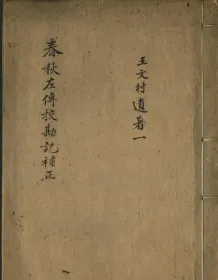 王文村遺著一
春秋左傳校勘記補正